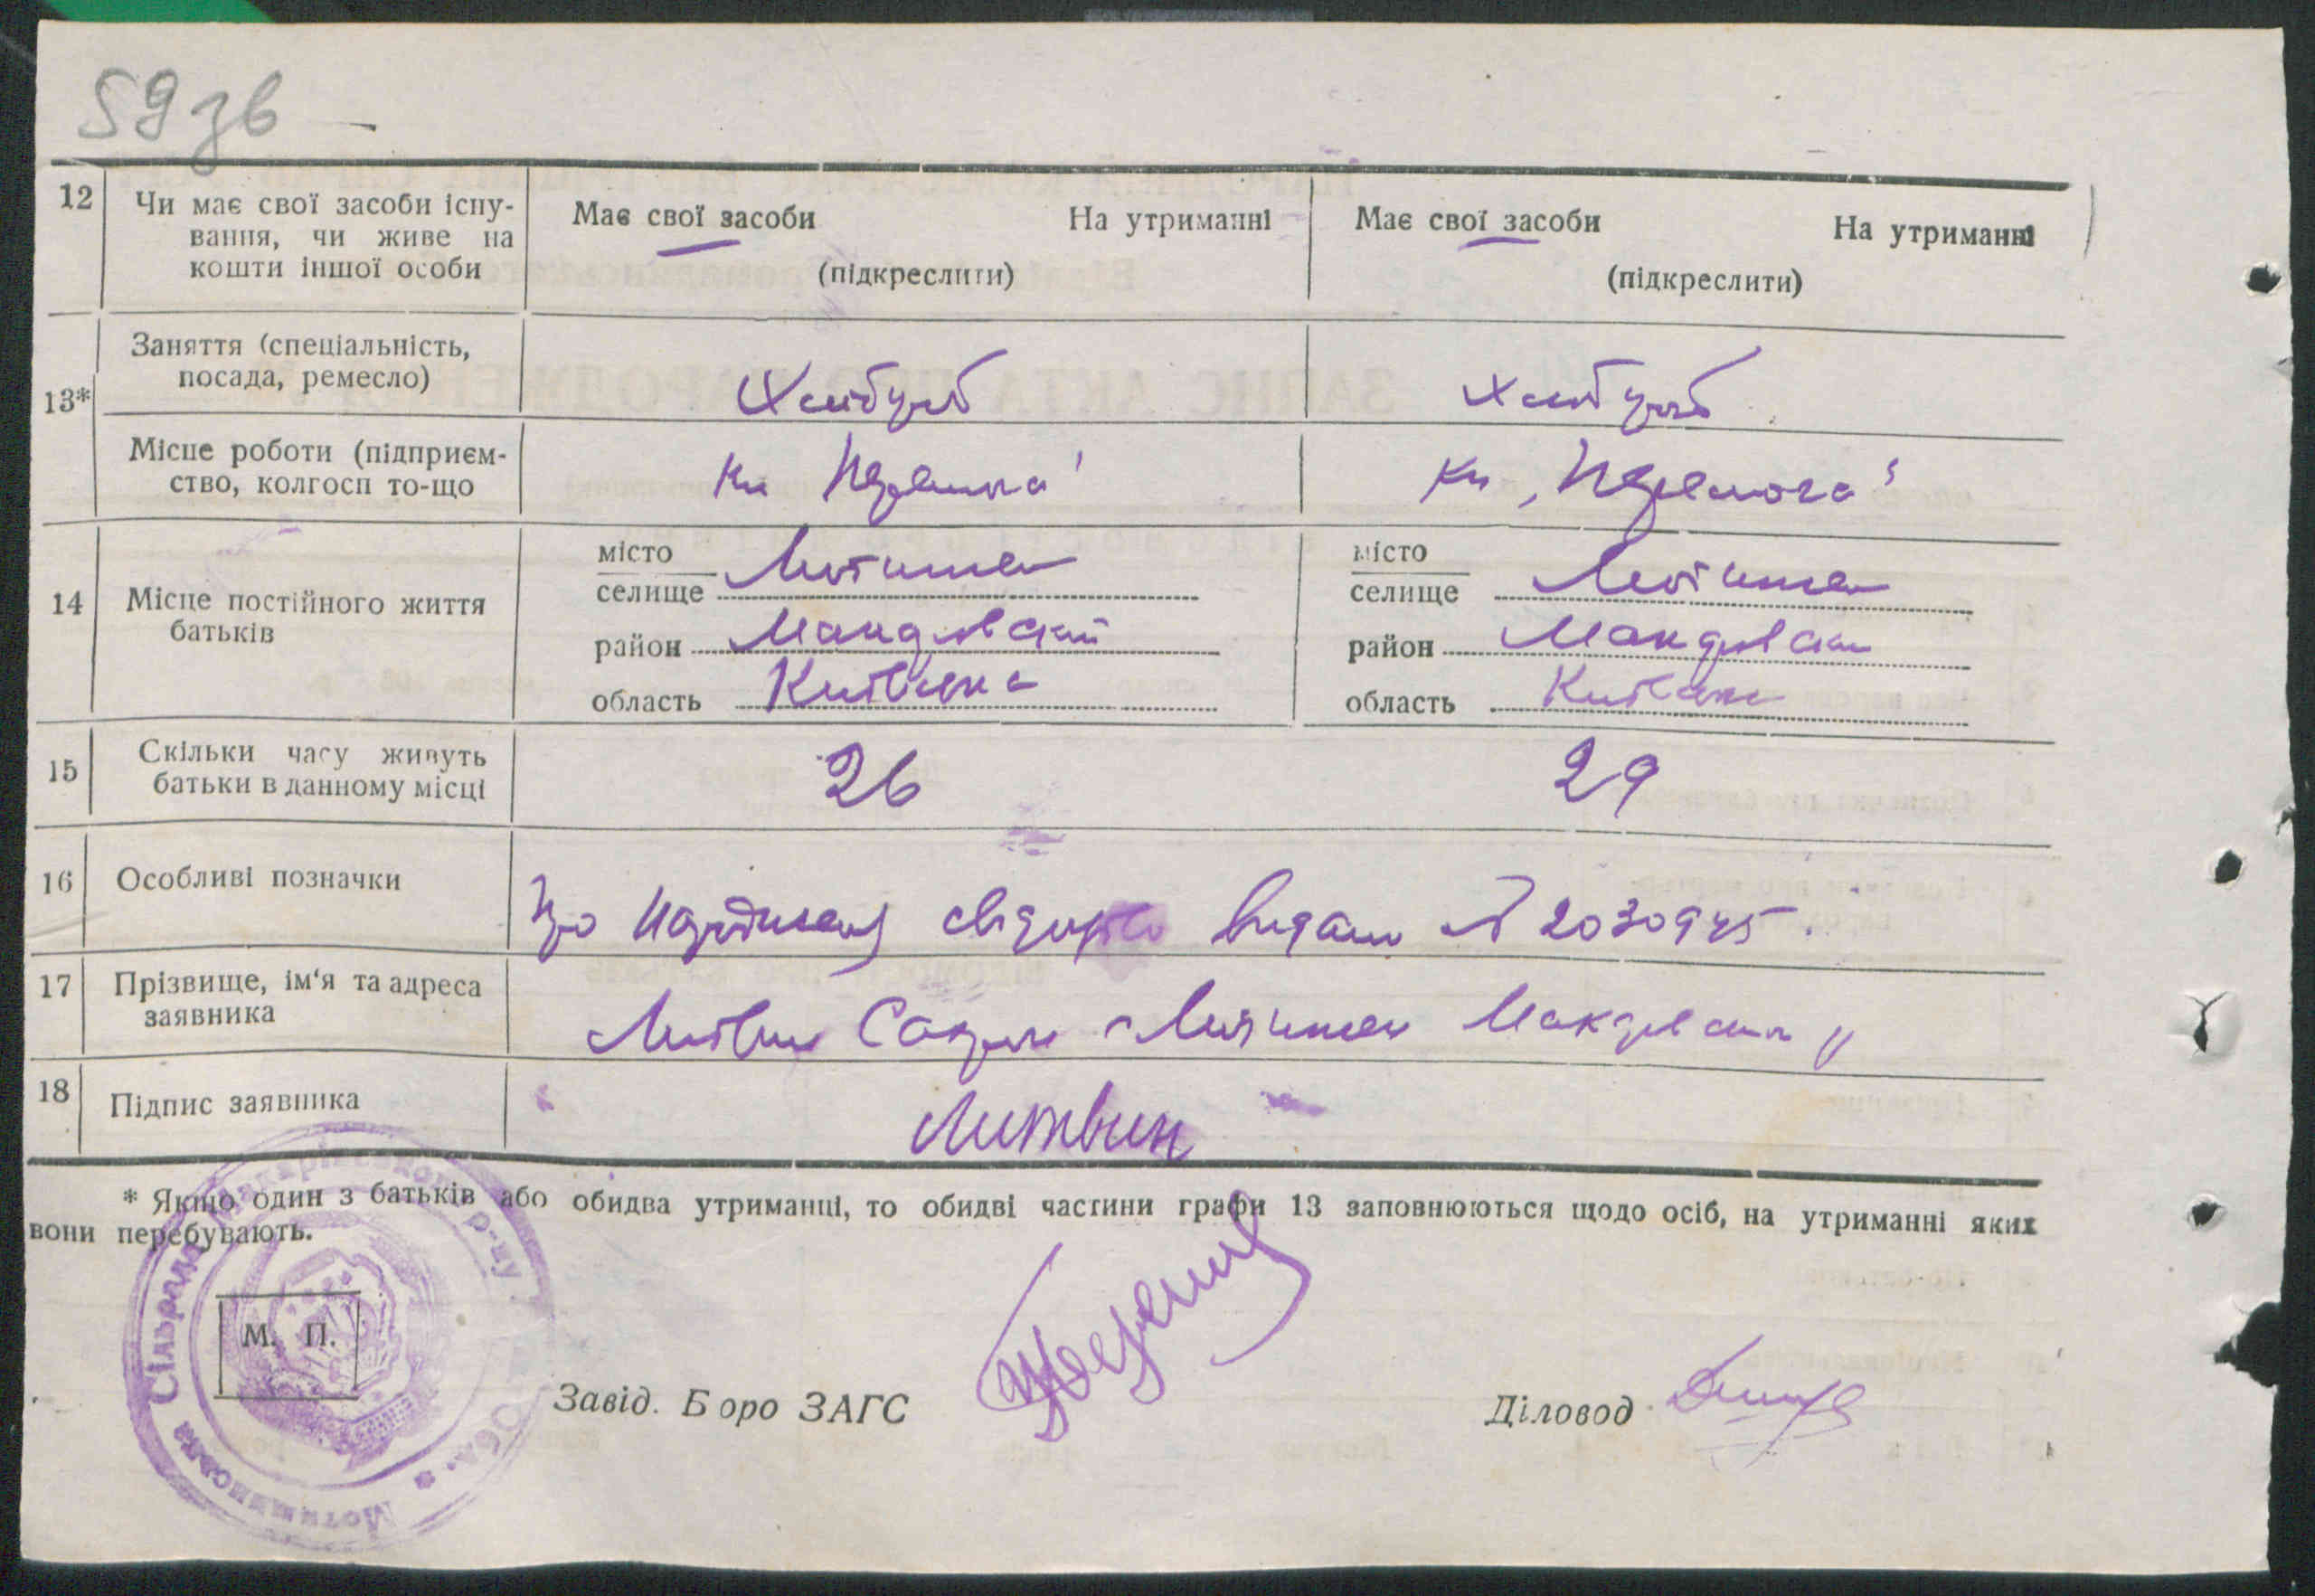 59 зв
12 Чи має свої засоби існу-
вання, чи живе на
кошти іншої особи
Має свої засоби На утриманні
(підкреслити)
Має свої засоби На утриманні
(підкреслити)
13*
Заняття (спеціальність,
посада, ремесло)
Хлібороб
Хлібороб
Місце роботи (підприєм-
ство, колгосп то-що
"Перемога"
14 Місце постійного життя
батьків
місто
селище Мотижин
район Макарівський
область Київська
місто
селище Мотижин
район Макарівськ
область Київська
15 Скільки часу живуть
батьки в данному місці
26
29
16 Особливі позначки
Про народження свідоцтво видано № 2030945.
17 Прізвище, ім'я та адреса
заявника
Литвин Мотижин Макарівськ
18 Підпис заявника
Литвин
* Якщо один з батьків або обидва утриманці, то обидві частини графи 13 заповнюються щодо осіб, на утриманні яких
вони перебувають.
Мотижинська Сільрада Макарівського р-ну обл.
М. П.
Завід. Бюро ЗАГС
Діловод